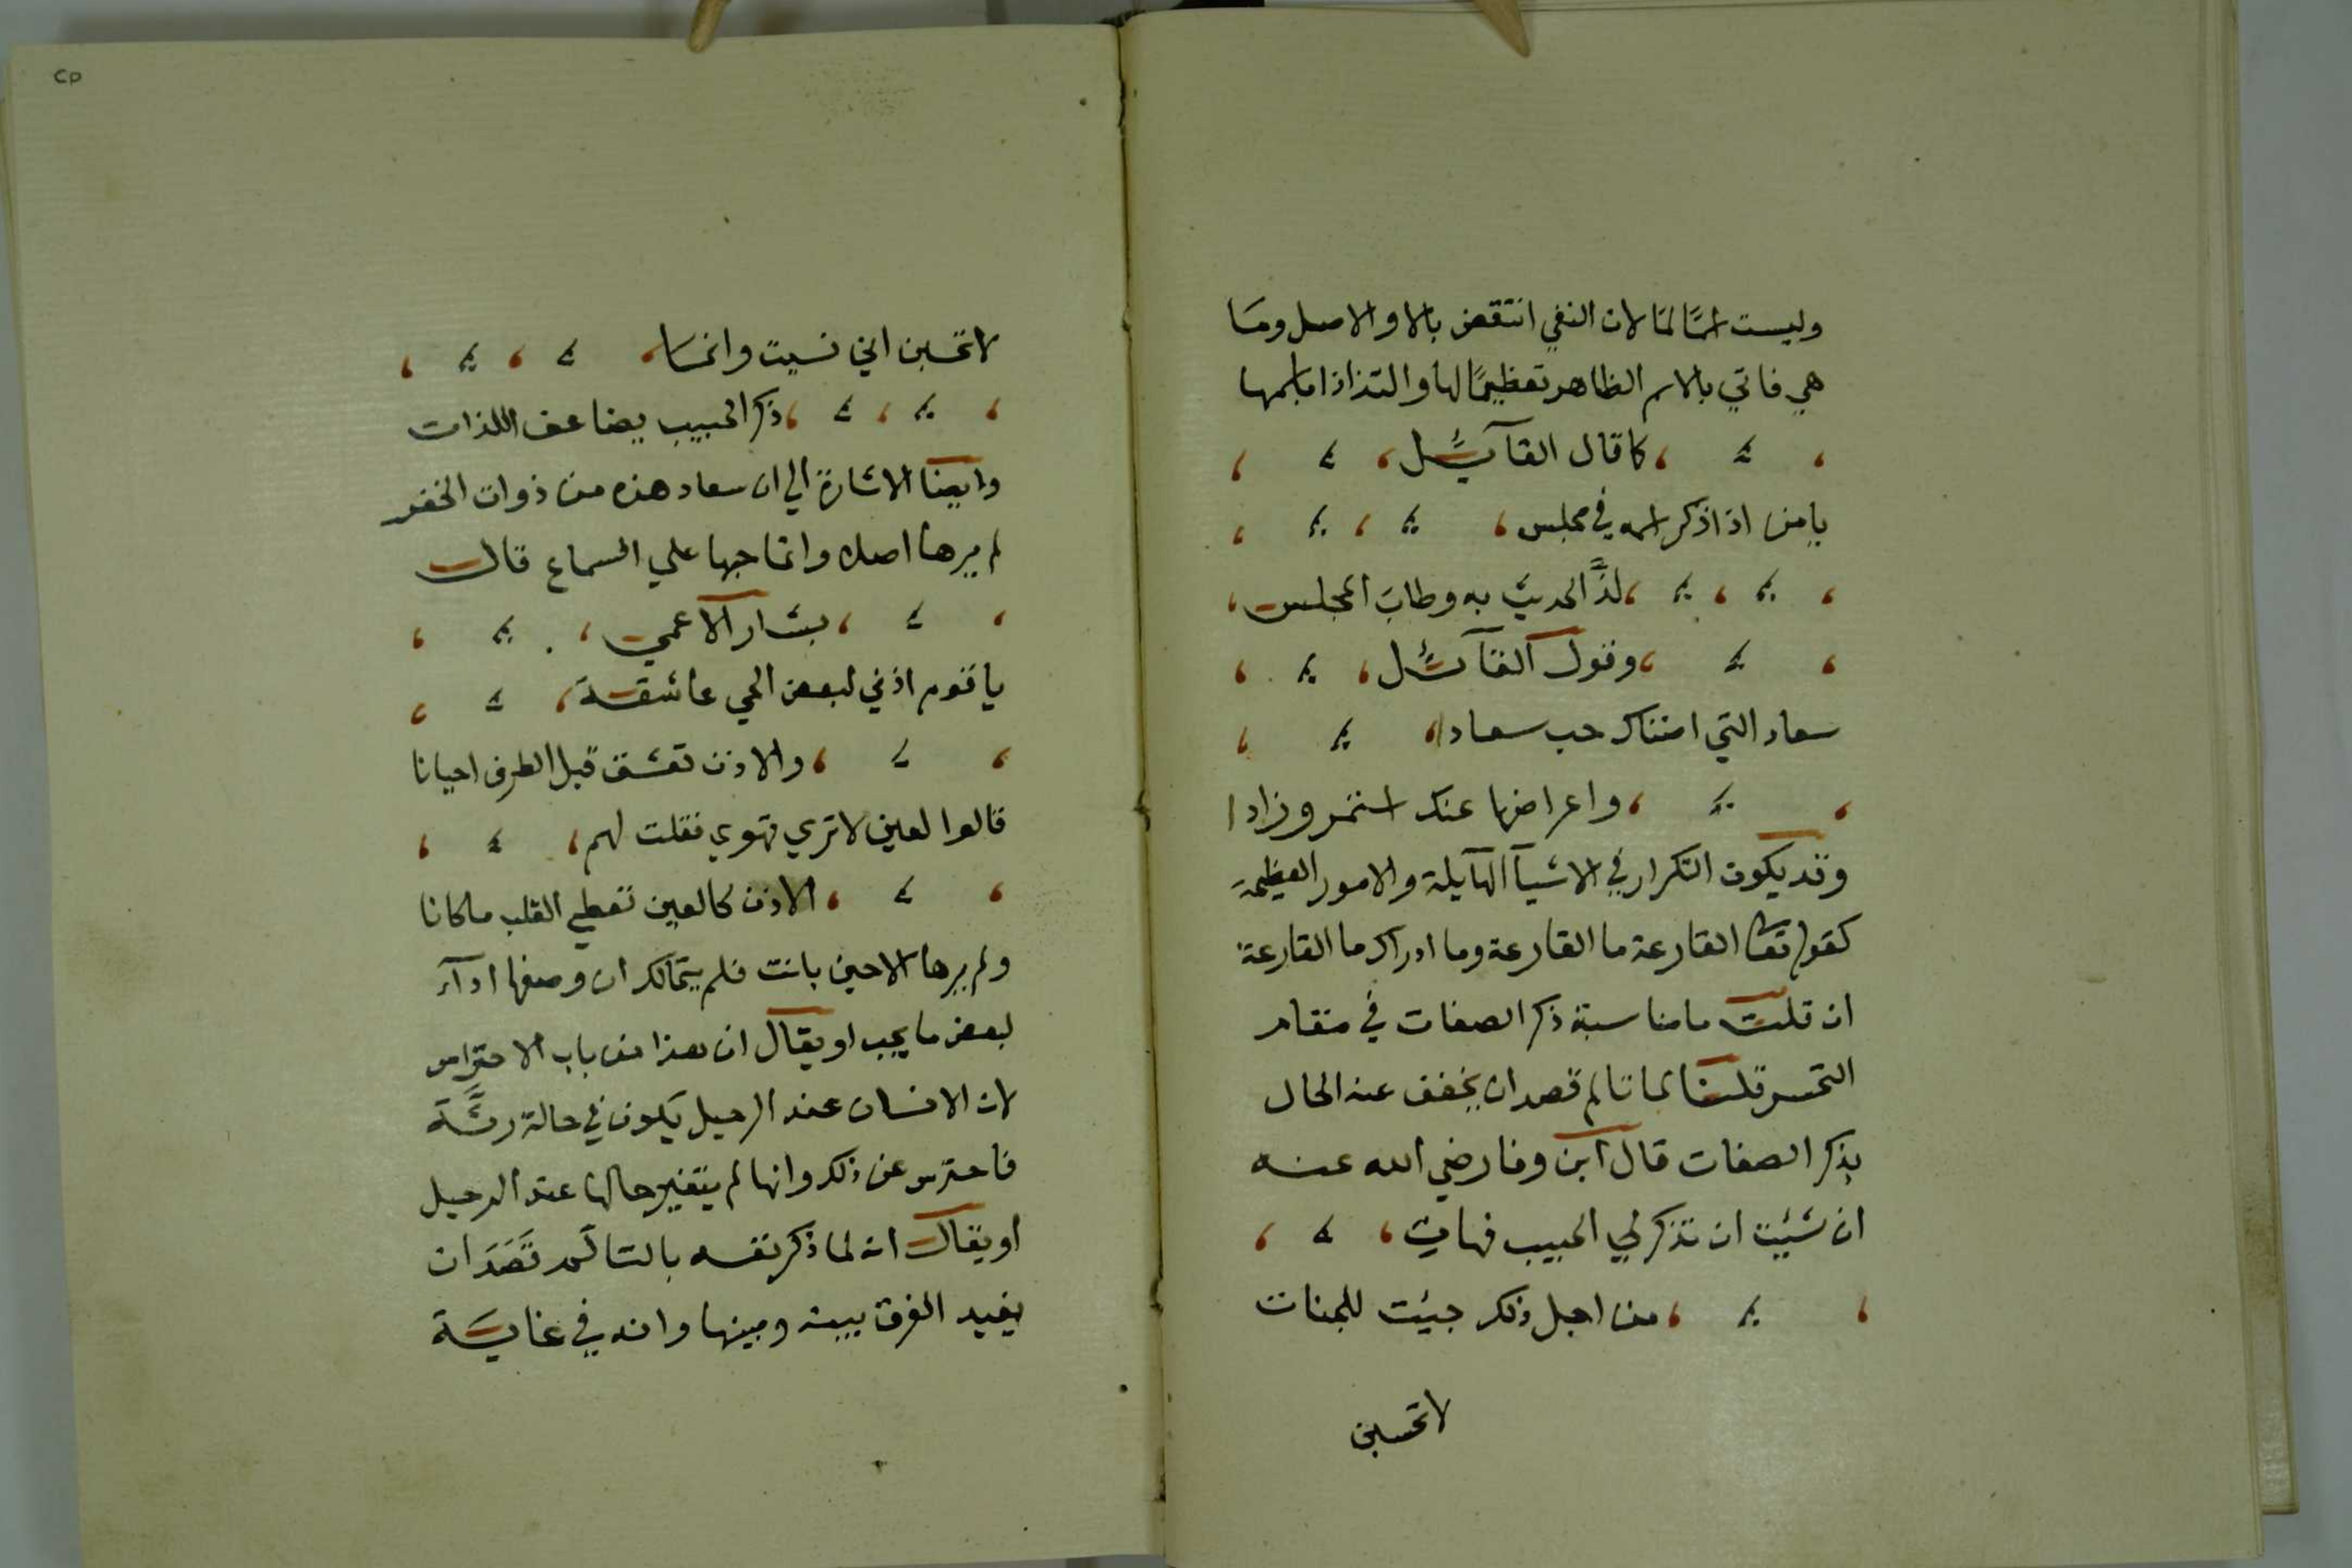 وليست اسمًا لما لان النفي انتقض بالا والاصل وما
هي فاتي بالاسم الظاهر تعظيمًا لها والتذاذا باسمها
كما قال القآئل
يا من اذا ذكر اسمه في مجلس
لذَّ الحديث به وطابَ المجلس
وقول القآئل
سعاد التي اضناك حب سعادا
واعراضها عنك استمر وزادا
وقد يكون التكرار في الاشيآ الهآيلة والامور العظيمة
كقوله تعا القارعة ما القارعة وما ادراك ما القارعة
ان قلت ما مناسبة ذكر الصفات في مقام
التحسر قلنا لما تالم قصد ان يخفف عنه الحال
بذكر الصفات قال ابن وفا رضي الله عنه
ان شئيت ان تذكر لي الحبيب فهات
من اجل ذلك جيئت للجنات
لا تحسبن
٢٥
لا تحسبن اني نسيت وانما
ذكر الحبيب يضاعف اللذات
وايضا الاشارة الي ان سعاد هذه من ذوات الخفر
لم يرها اصلا وانما حبها علي السماع قال
بشار الاعمي
يا قوم اذني لبعض الحي عاشقة
والاذن تعشق قبل الطرف احيانا
قالوا لعين لا تري تهوي فقلت لهم
الاذن كالعين تعطي القلب ما كانا
ولم يرها الا حين بانت فلم يتمالك ان وصفها ادآء
لبعض ما يجب او يقال ان هذا من باب الاحتراس
لان الانسان عند الرحيل يكون في حالة رثَّة
فاحترس عن ذلك وانها لم يتغير حالها عند الرحيل
او يقال انه لما ذكر نفسه بالتالم قَصَدَ ان
يفيد الفرق بينه وبينها وانه في غاية